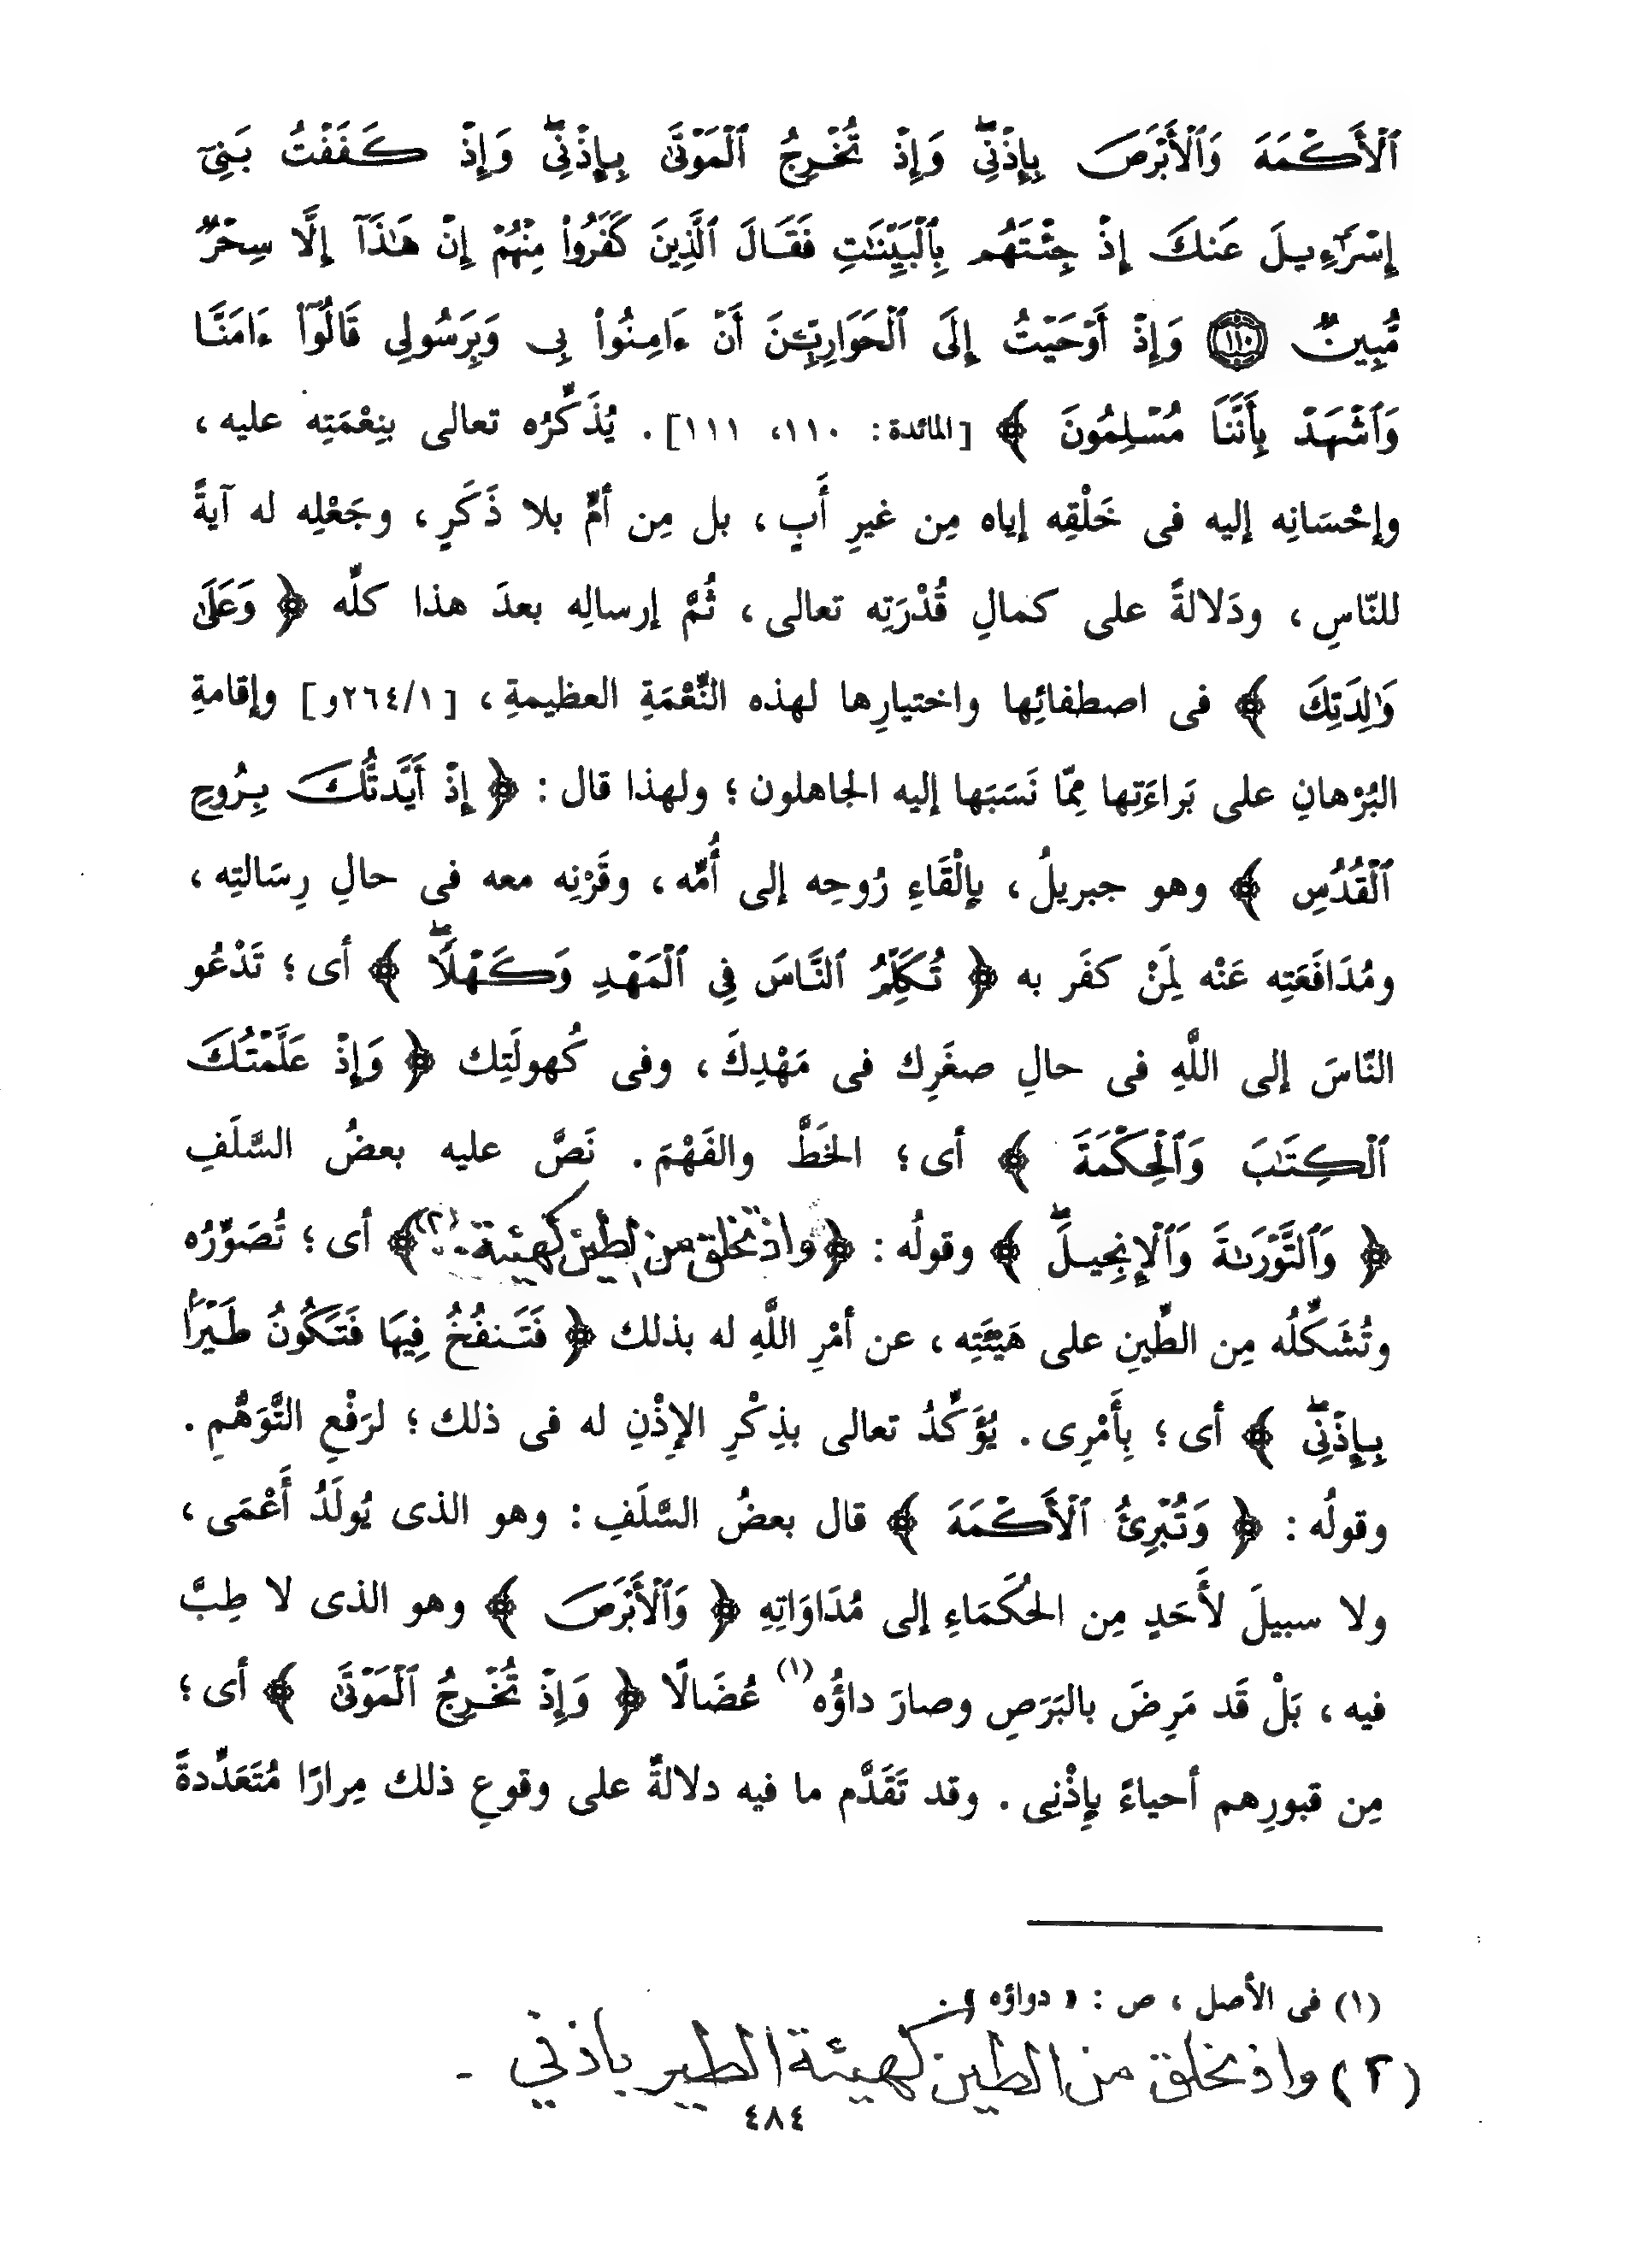 ٱلْأَكْمَهَ وَٱلْأَبْرَصَ بِإِذْنِىۖ وَإِذْ تُخْرِجُ ٱلْمَوْتَىٰ بِإِذْنِىۖ وَإِذْ كَفَفْتُ بَنِىٓ
إِسْرَٰٓءِيلَ عَنكَ إِذْ جِئْتَهُم بِٱلْبَيِّنَٰتِ فَقَالَ ٱلَّذِينَ كَفَرُوا۟ مِنْهُمْ إِنْ هَٰذَآ إِلَّا سِحْرٌ
مُّبِينٌ ۝١١٠ وَإِذْ أَوْحَيْتُ إِلَى ٱلْحَوَارِيِّـۧنَ أَنْ ءَامِنُوا۟ بِى وَبِرَسُولِى قَالُوٓا۟ ءَامَنَّا
وَٱشْهَدْ بِأَنَّنَا مُسْلِمُونَ ﴾ [المائدة: ١١٠، ١١١]. يُذَكِّرُه تعالى بنِعْمَتِه عليه،
وإحْسَانِه إليه فى خَلْقِه إياه مِن غيرِ أَبٍ، بل مِن أمٍّ بلا ذَكَرٍ، وجَعْلِه له آيةً
للنّاسِ، ودَلالةً على كمالِ قُدْرَتِه تعالى، ثُمّ إرسالِه بعدَ هذا كلِّه ﴿ وَعَلَىٰ
وَٰلِدَتِكَ ﴾ فى اصطفائِها واختيارِها لهذه النِّعْمَةِ العظيمةِ، [٢٦٤/١و] وإقامةِ
البُرْهانِ على بَراءَتِها مِمّا نَسَبَها إليه الجاهلون؛ ولهذا قال: ﴿ إِذْ أَيَّدتُّكَ بِرُوحِ
ٱلْقُدُسِ ﴾ وهو جبريلُ، بإلْقَاءِ رُوحِه إلى أُمِّه، وقَرْنِه معه فى حالِ رِسَالتِه،
ومُدَافَعَتِه عَنْه لِمَنْ كفَر به ﴿ تُكَلِّمُ ٱلنَّاسَ فِى ٱلْمَهْدِ وَكَهْلًاۖ ﴾ أى؛ تَدْعُو
النّاسَ إلى اللَّهِ فى حالِ صغَرِك فى مَهْدِكَ، وفى كُهولَتِك ﴿ وَإِذْ عَلَّمْتُكَ
ٱلْكِتَٰبَ وَٱلْحِكْمَةَ ﴾ أى؛ الخَطَّ والفَهْمَ. نَصَّ عليه بعضُ السَّلَفِ
﴿ وَٱلتَّوْرَىٰةَ وَٱلْإِنجِيلَۖ ﴾ وقولُه: ﴿ واذ تخلق من الطين كهيئة..(٢) ﴾ أى؛ تُصَوِّرُه
وتُشَكِّلُه مِن الطِّينِ على هَيْئَتِه، عن أمْرِ اللَّهِ له بذلك ﴿ فَتَنفُخُ فِيهَا فَتَكُونُ طَيْرًۢا
بِإِذْنِىۖ ﴾ أى؛ بِأَمْرِى. يُؤَكِّدُ تعالى بذِكْرِ الإذْنِ له فى ذلك؛ لرَفْعِ التَّوَهُّمِ.
وقولُه: ﴿ وَتُبْرِئُ ٱلْأَكْمَهَ ﴾ قال بعضُ السَّلَفِ: وهو الذى يُولَدُ أَعْمَى،
ولا سبيلَ لأَحَدٍ مِن الحُكَمَاءِ إلى مُدَاوَاتِهِ ﴿ وَٱلْأَبْرَصَ ﴾ وهو الذى لا طِبَّ
فيه، بَلْ قَد مَرِضَ بالبَرَصِ وصارَ داؤُه(١) عُضَالًا ﴿ وَإِذْ تُخْرِجُ ٱلْمَوْتَىٰ ﴾ أى؛
مِن قبورِهم أحياءً بإِذْنِى. وقد تَقَدَّم ما فيه دلالةٌ على وقوعِ ذلك مِرارًا مُتَعَدِّدةً
(١) فى الأصل، ص: « دواؤه ».
(٢) واذ تخلق من الطين كهيئة الطير باذني -
٤٨٤